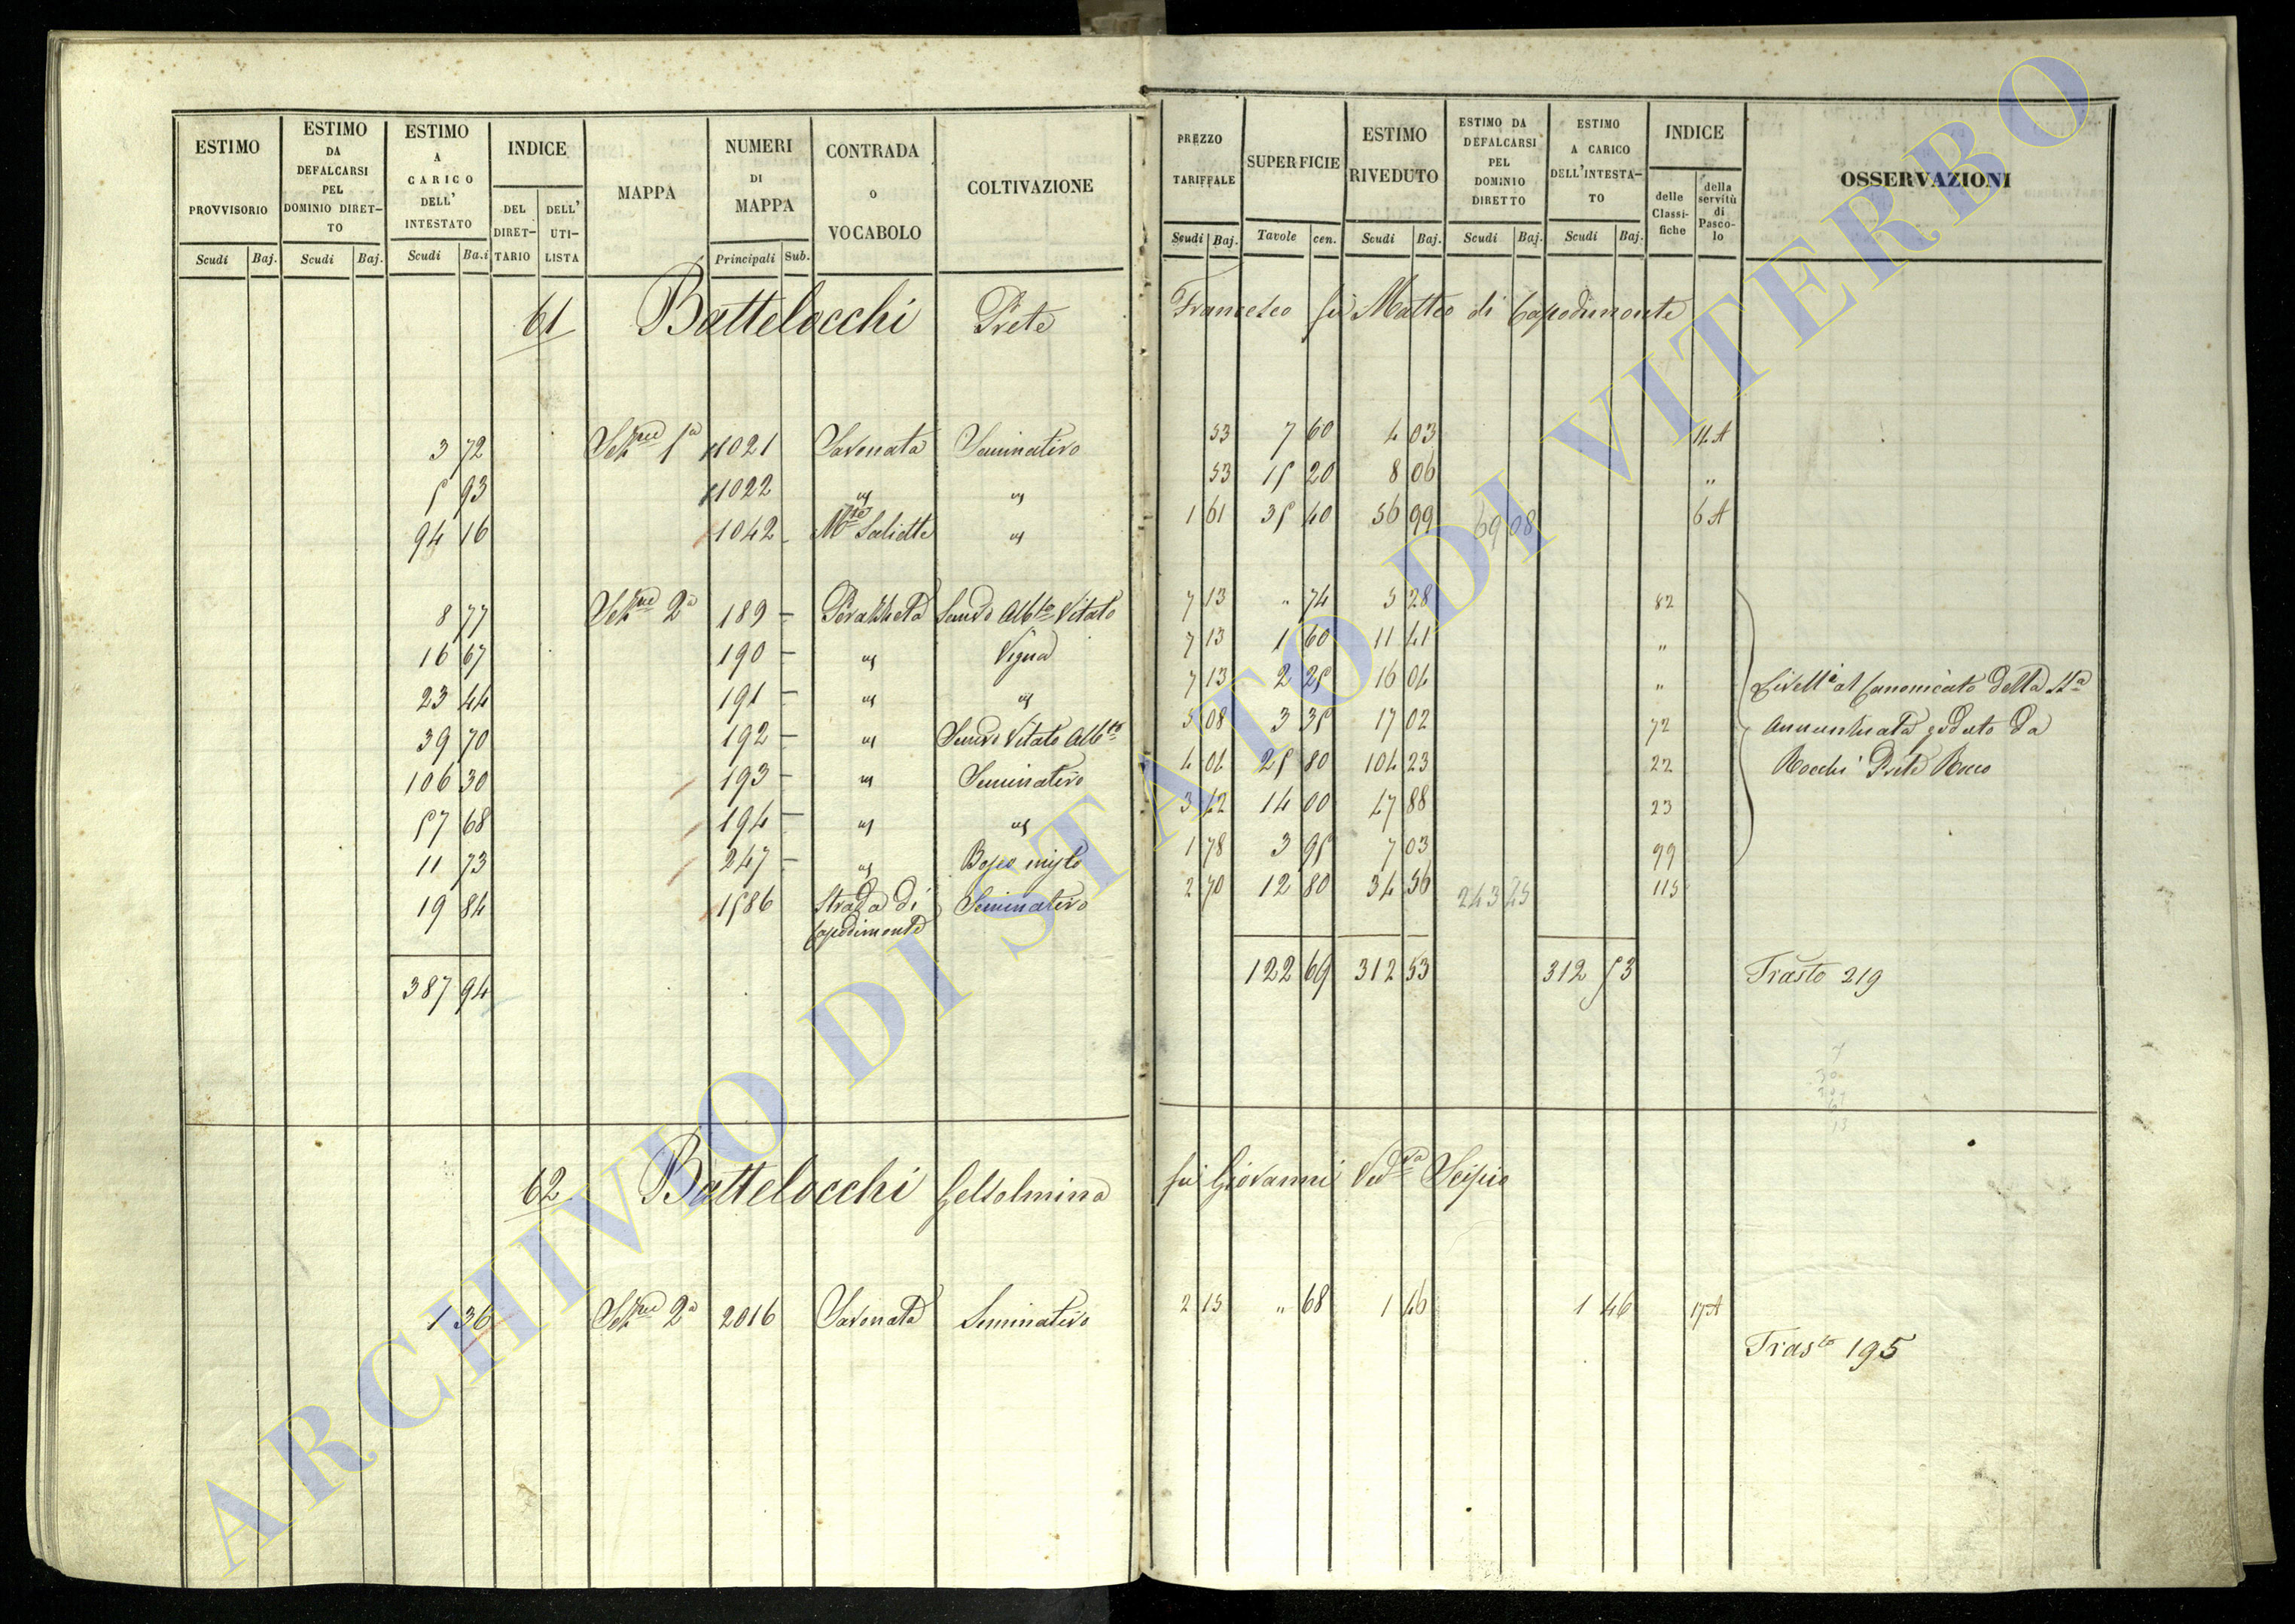 ESTIMO PROVVISORIO | ESTIMO DA DEFALCARSI PEL DOMINIO DIRET-TO | ESTIMO A CARICO DELL' INTESTATO | INDICE DEL DIRET-TARIO | DELL' UTI-LISTA | MAPPA | NUMERI DI MAPPA | CONTRADA o VOCABOLO | COLTIVAZIONE | PREZZO TARIFFALE | SUPERFICIE | ESTIMO RIVEDUTO | ESTIMO DA DEFALCARSI PEL DOMINIO DIRETTO | ESTIMO A CARICO DELL'INTESTA-TO | INDICE delle Classi-fiche | della servitù di Pasco-lo | OSSERVAZIONI
Scudi Baj. Scudi Baj. Scudi Ba.i Principali Sub. Scudi Baj. Tavole cen. Scudi Baj. Scudi Baj. Scudi Baj.
61 Battelocchi Prete Francesco fù Matteo di Capodimonte
3 72 Sez.ne 1a 1021 Savonata Seminativo 53 7 60 4 03 11A
5 93 1022 " " 53 15 20 8 06 "
94 16 1042 M.te Saliette " 1 61 35 40 56 99 69 08 6A
8 77 Sez.ne 2a 189 Porazzeta Semvo Alb.to Vitato 7 13 " 74 5 28 82
16 67 190 " Vigna 7 13 1 60 11 41 "
23 44 191 " " 7 13 2 25 16 04 "
Livellº al Canonicato della SS.a
39 70 192 " Semvo Vitato Alb.to 5 08 3 35 17 02 72
Annunziata goduto da
106 30 193 " Seminativo 4 04 25 80 104 23 22
Rocchi Prete Rocco
57 68 194 " " 3 42 14 00 47 88 23
11 73 247 " Bosco misto 1 78 3 95 7 03 99
19 84 1586 Strada di Capodimonte Seminativo 2 70 12 80 34 56 243 45 115
387 94 122 69 312 53 312 53 Trasto 219
62 Battelocchi Gelsolmina fù Giovanni Ved.va Scipio
1 36 Sez.ne 2a 2016 Savonata Seminativo 2 15 " 68 1 46 1 46 17A
Trasto 195
ARCHIVIO DI STATO DI VITERBO